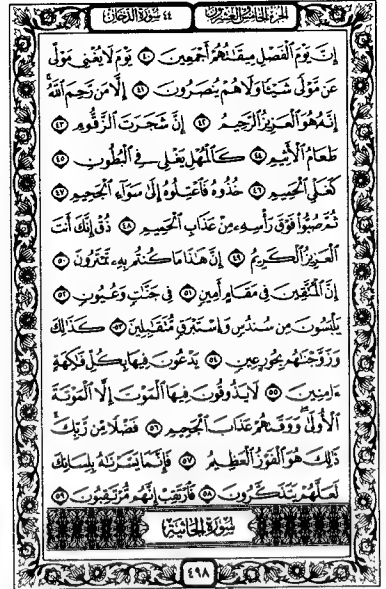 الجزء الخامس والعشرون ٤٤ سورة الدخان
إِنَّ يَوْمَ ٱلْفَصْلِ مِيقَـٰتُهُمْ أَجْمَعِينَ ٤٠ يَوْمَ لَا يُغْنِى مَوْلًى
عَن مَّوْلًى شَيْـًٔا وَلَا هُمْ يُنصَرُونَ ٤١ إِلَّا مَن رَّحِمَ ٱللَّهُ ۚ
إِنَّهُۥ هُوَ ٱلْعَزِيزُ ٱلرَّحِيمُ ٤٢ إِنَّ شَجَرَتَ ٱلزَّقُّومِ ٤٣
طَعَامُ ٱلْأَثِيمِ ٤٤ كَٱلْمُهْلِ يَغْلِى فِى ٱلْبُطُونِ ٤٥
كَغَلْىِ ٱلْحَمِيمِ ٤٦ خُذُوهُ فَٱعْتِلُوهُ إِلَىٰ سَوَآءِ ٱلْجَحِيمِ ٤٧
ثُمَّ صُبُّوا۟ فَوْقَ رَأْسِهِۦ مِنْ عَذَابِ ٱلْحَمِيمِ ٤٨ ذُقْ إِنَّكَ أَنتَ
ٱلْعَزِيزُ ٱلْكَرِيمُ ٤٩ إِنَّ هَـٰذَا مَا كُنتُم بِهِۦ تَمْتَرُونَ ٥٠
إِنَّ ٱلْمُتَّقِينَ فِى مَقَامٍ أَمِينٍ ٥١ فِى جَنَّـٰتٍ وَعُيُونٍ ٥٢
يَلْبَسُونَ مِن سُندُسٍ وَإِسْتَبْرَقٍ مُّتَقَـٰبِلِينَ ٥٣ كَذَٰلِكَ
وَزَوَّجْنَـٰهُم بِحُورٍ عِينٍ ٥٤ يَدْعُونَ فِيهَا بِكُلِّ فَـٰكِهَةٍ
ءَامِنِينَ ٥٥ لَا يَذُوقُونَ فِيهَا ٱلْمَوْتَ إِلَّا ٱلْمَوْتَةَ
ٱلْأُولَىٰ ۖ وَوَقَىٰهُمْ عَذَابَ ٱلْجَحِيمِ ٥٦ فَضْلًا مِّن رَّبِّكَ ۚ
ذَٰلِكَ هُوَ ٱلْفَوْزُ ٱلْعَظِيمُ ٥٧ فَإِنَّمَا يَسَّرْنَـٰهُ بِلِسَانِكَ
لَعَلَّهُمْ يَتَذَكَّرُونَ ٥٨ فَٱرْتَقِبْ إِنَّهُم مُّرْتَقِبُونَ ٥٩
سُورَةُ الجَاثِيَة
٤٩٨